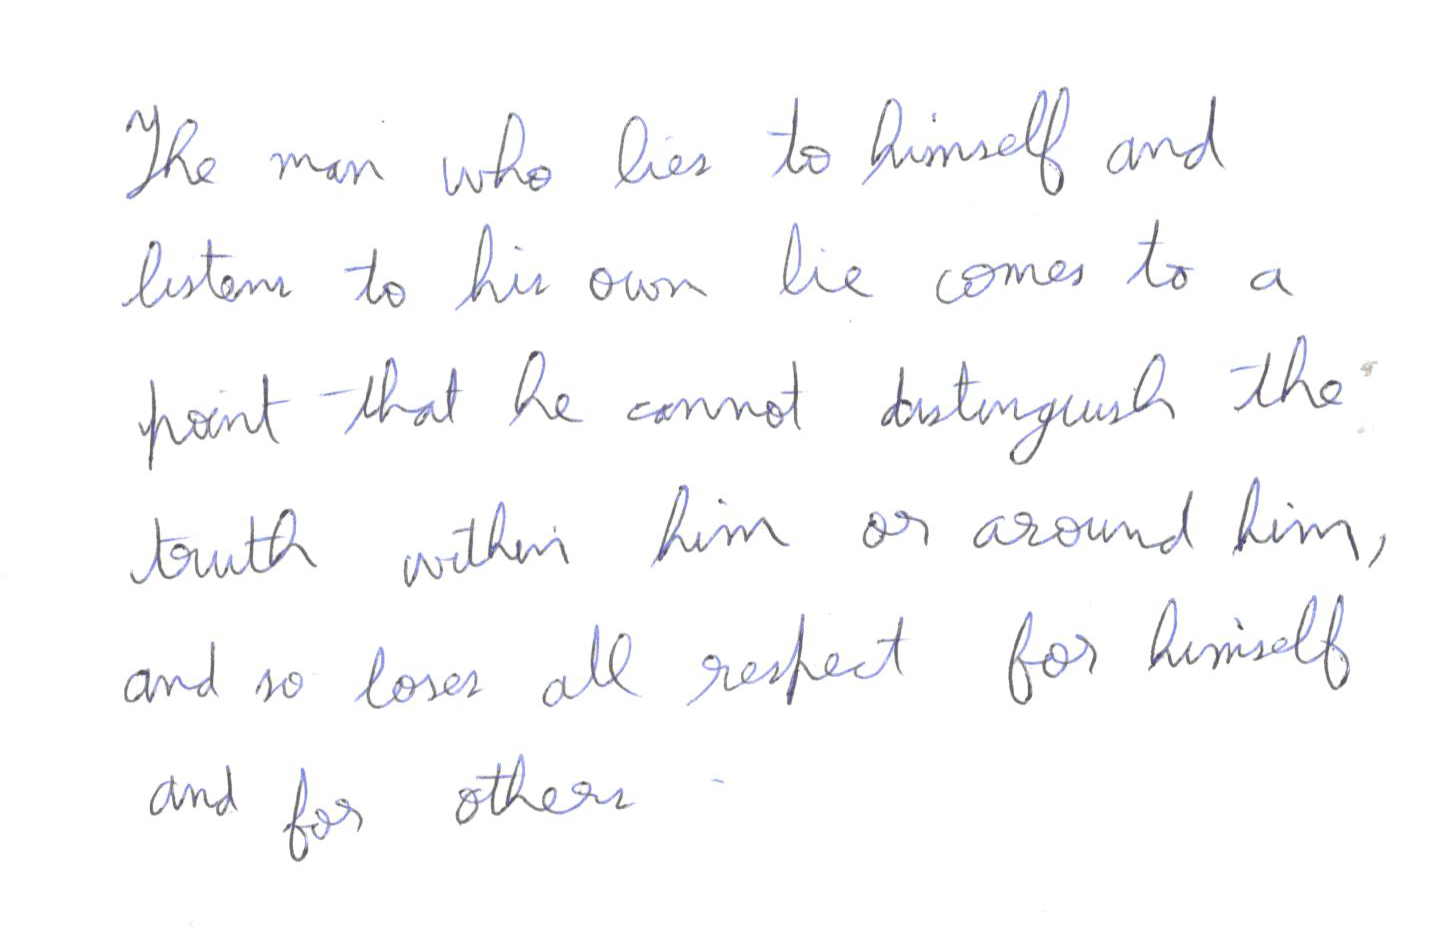 The man who lies to himself and
listens to his own lie comes to a
point that he cannot distinguish the
truth within him or around him,
and so loses all respect for himself
and for others -